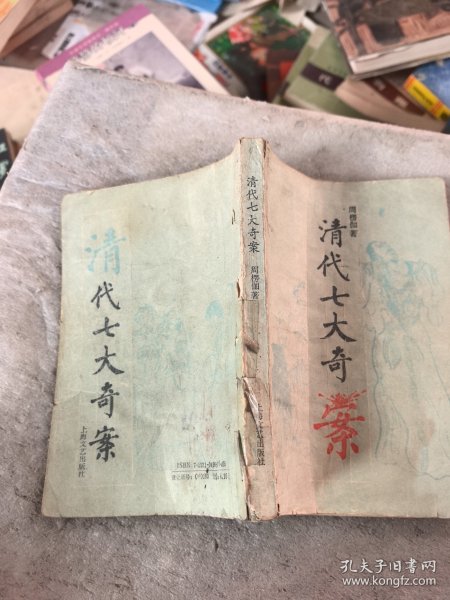 清代七大奇案
上海文艺出版社
清代七大奇案
周楞伽著
文艺出版社
周楞伽著
清代七大奇案
孔夫子旧书网
www.kongfz.com